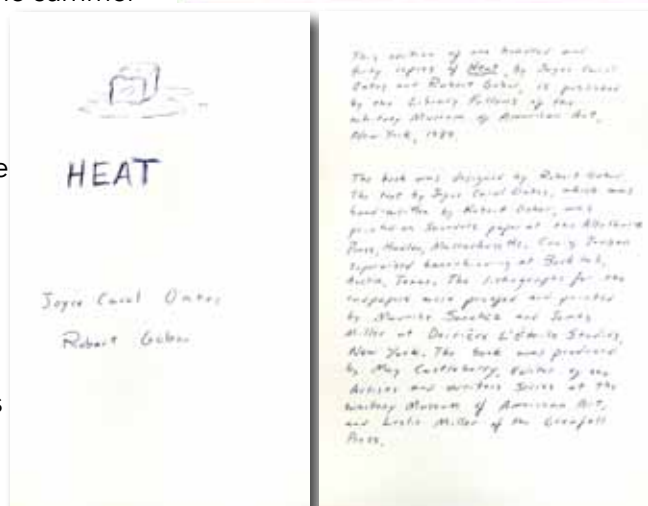 summer
HEAT
Joyce Carol Oates
Robert Gober
This edition of one hundred and
forty copies of Heat, by Joyce Carol
Oates and Robert Gober, is published
by the Library Fellows of the
Whitney Museum of American Art,
New York, 1989.
The book was designed by Robert Gober.
The text by Joyce Carol Oates, which was
hand-written by Robert Gober, was
printed on Saunders paper at the
Press, Hadley, Massachusetts. Craig Jensen
supervised handbinding at BookLab,
Austin, Texas. The lithographs for the
endpapers were proofed and printed
by Maurice Sanchez and James
Miller at Derrière L'Etoile Studios,
New York. The book was produced
by May Castleberry, Editor of the
Artists and Writers Series at the
Whitney Museum of American Art,
and Leslie Miller of the Grenfell
Press.